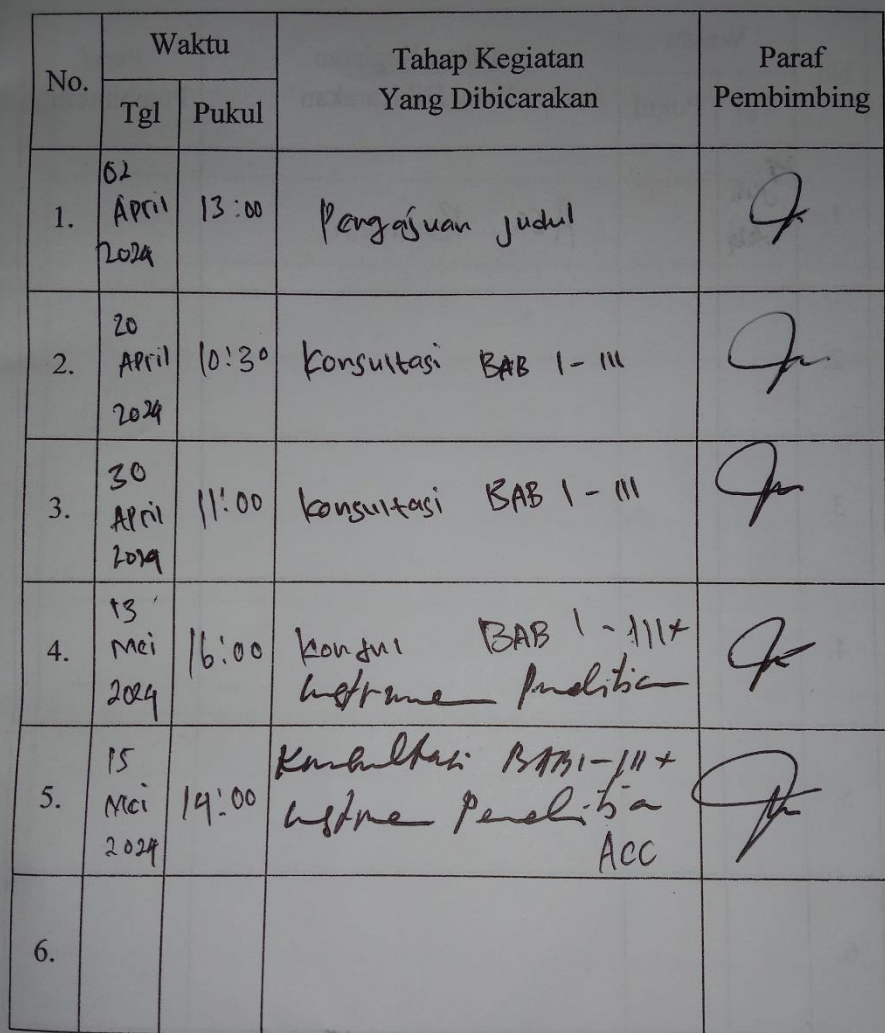 No.
Waktu
Tahap Kegiatan
Yang Dibicarakan
Paraf
Pembimbing
Tgl
Pukul
1.
02
April
2024
13:00
Pengajuan Judul
2.
20
April
2024
10:30
Konsultasi BAB I - III
3.
30
April
2024
11:00
Konsultasi BAB I - III
4.
13
Mei
2024
16:00
Konsul BAB I - III +
Instrumen Penelitian
5.
15
Mei
2024
14:00
Konsultasi BAB I - III +
Instrumen Penelitian
ACC
6.